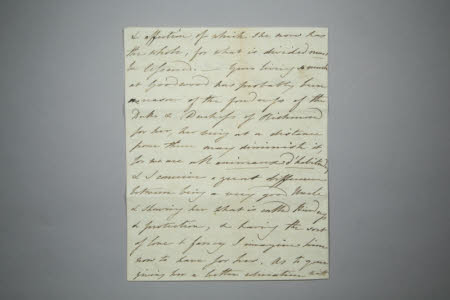 & affection of which she now has
the whole, for what is divided must
be lessened. — Your living so much
at Goodwood has probably been
reason of the fondness of the
Duke & Duchess of Richmond
for her, her being at a distance
from them may diminish it,
for we are all animaux d'habitude,
& I conceive a great difference
between being a very good Uncle
& shewing her what is called kindness
& protection, & having the sort
of love & fancy I imagine him
now to have for her. As to your
giving her a better education